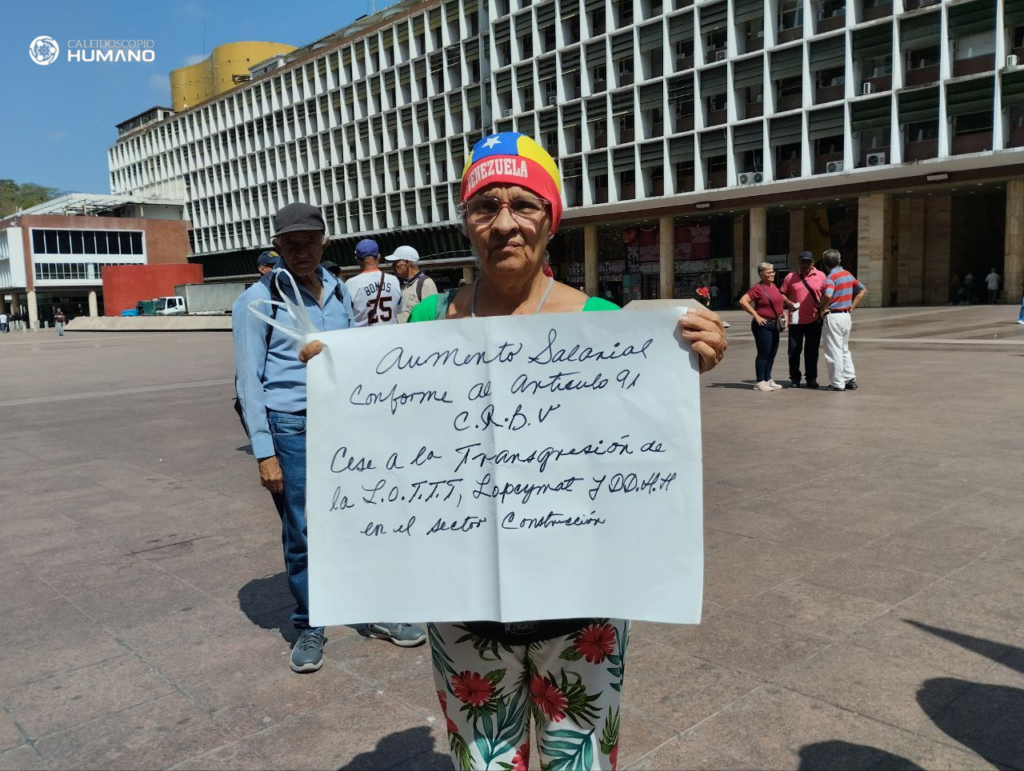 CALEIDOSCOPIO
HUMANO
VENEZUELA
BONDS
25
Aumento Salarial
Conforme al Articulo 91
C.R.B.V
Cese a la Transgresión de
la L.O.T.T.T, Lopcymat Y DD.H.H
en el sector Construcción